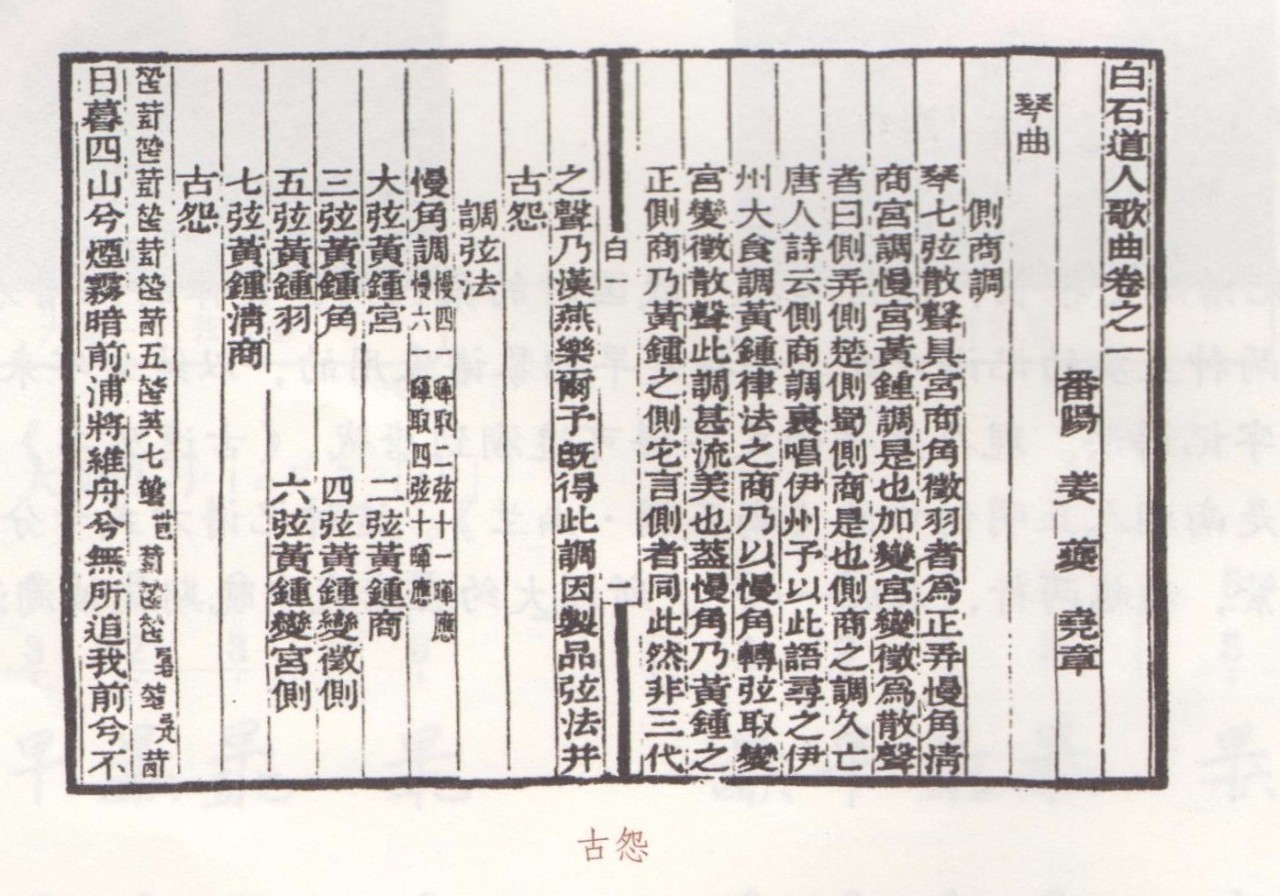 白石道人歌曲卷之一
番陽 姜夔 堯章
琴曲
側商調
琴七弦散聲具宮商角徵羽者爲正弄慢角淸
商宮調慢宮黃鍾調是也加變宮變徵爲散聲
者曰側弄側楚側蜀側商是也側商之調久亡
唐人詩云側商調裏唱伊州予以此語尋之伊
州大食調黃鍾律法之商乃以慢角轉弦取變
宮變徵散聲此調甚流美也蓋慢角乃黃鍾之
正側商乃黃鍾之側它言側者同此然非三代
白一
之聲乃漢燕樂爾予旣得此調因製品弦法并
古怨
調弦法
慢角調慢四暉取二弦十一暉應慢六暉取四弦十暉應
大弦黃鍾宮 二弦黃鍾商
三弦黃鍾角 四弦黃鍾變徵側
五弦黃鍾羽 六弦黃鍾變宮側
七弦黃鍾淸商
古怨
日暮四山兮煙霧暗前浦將維舟兮無所追我前兮不
古怨